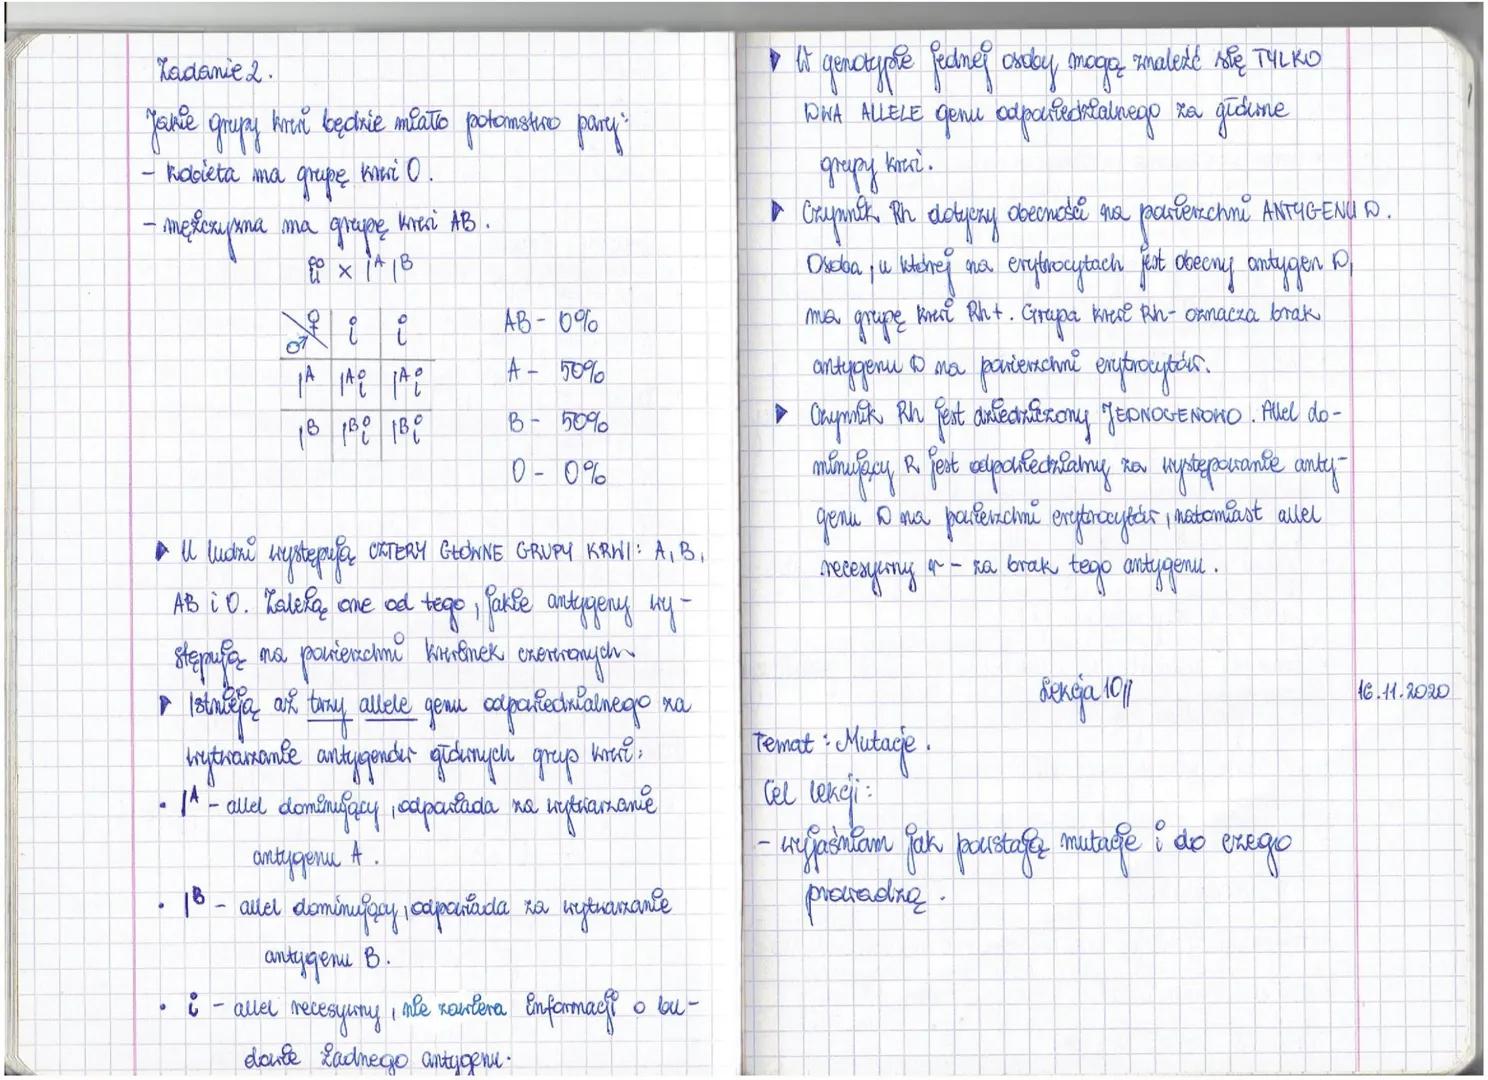 Zadanie 2.
Jakie grupy krwi będzie miało potomstwo pary:
- kobieta ma grupę krwi O.
- mężczyzna ma grupę krwi AB.
ii x I^A I^B
♀ i i
♂
I^A I^A i I^A i
I^B I^B i I^B i
AB - 0%
A - 50%
B - 50%
O - 0%
▶ U ludzi występują CZTERY GŁÓWNE GRUPY KRWI: A, B,
AB i O. Zależą one od tego, jakie antygeny wy-
stępują na powierzchni krwinek czerwonych.
▶ Istnieją aż trzy allele genu odpowiedzialnego za
wytwarzanie antygenów głównych grup krwi:
• I^A - allel dominujący, odpowiada za wytwarzanie
antygenu A.
• I^B - allel dominujący, odpowiada za wytwarzanie
antygenu B.
• i - allel recesywny, nie zawiera informacji o bu-
dowie żadnego antygenu.
▶ W genotypie jednej osoby mogą znaleźć się TYLKO
DWA ALLELE genu odpowiedzialnego za główne
grupy krwi.
▶ Czynnik Rh dotyczy obecności na powierzchni ANTYGENU D.
Osoba, u której na erytrocytach jest obecny antygen D,
ma grupę krwi Rh+. Grupa krwi Rh- oznacza brak
antygenu D na powierzchni erytrocytów.
▶ Czynnik Rh jest dziedziczony JEDNOGENOWO. Allel do-
minujący R jest odpowiedzialny za występowanie anty-
genu D na powierzchni erytrocytów, natomiast allel
recesywny r - za brak tego antygenu.
Lekcja 10 16.11.2020
Temat: Mutacje.
Cel lekcji:
- wyjaśniam jak powstają mutacje i do czego
prowadzą.